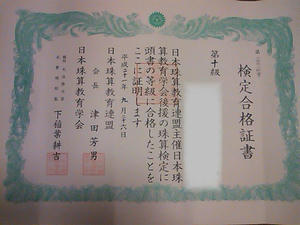 検定合格証書
第十級
日本珠算教育連盟主催日本珠
算教育学会後援の珠算検定に
頭書の等級に合格したことを
ここに証明します
平成二十一年九月二十六日
日本珠算教育連盟
会長 津田芳男
日本珠算教育学会
下稲葉耕吉